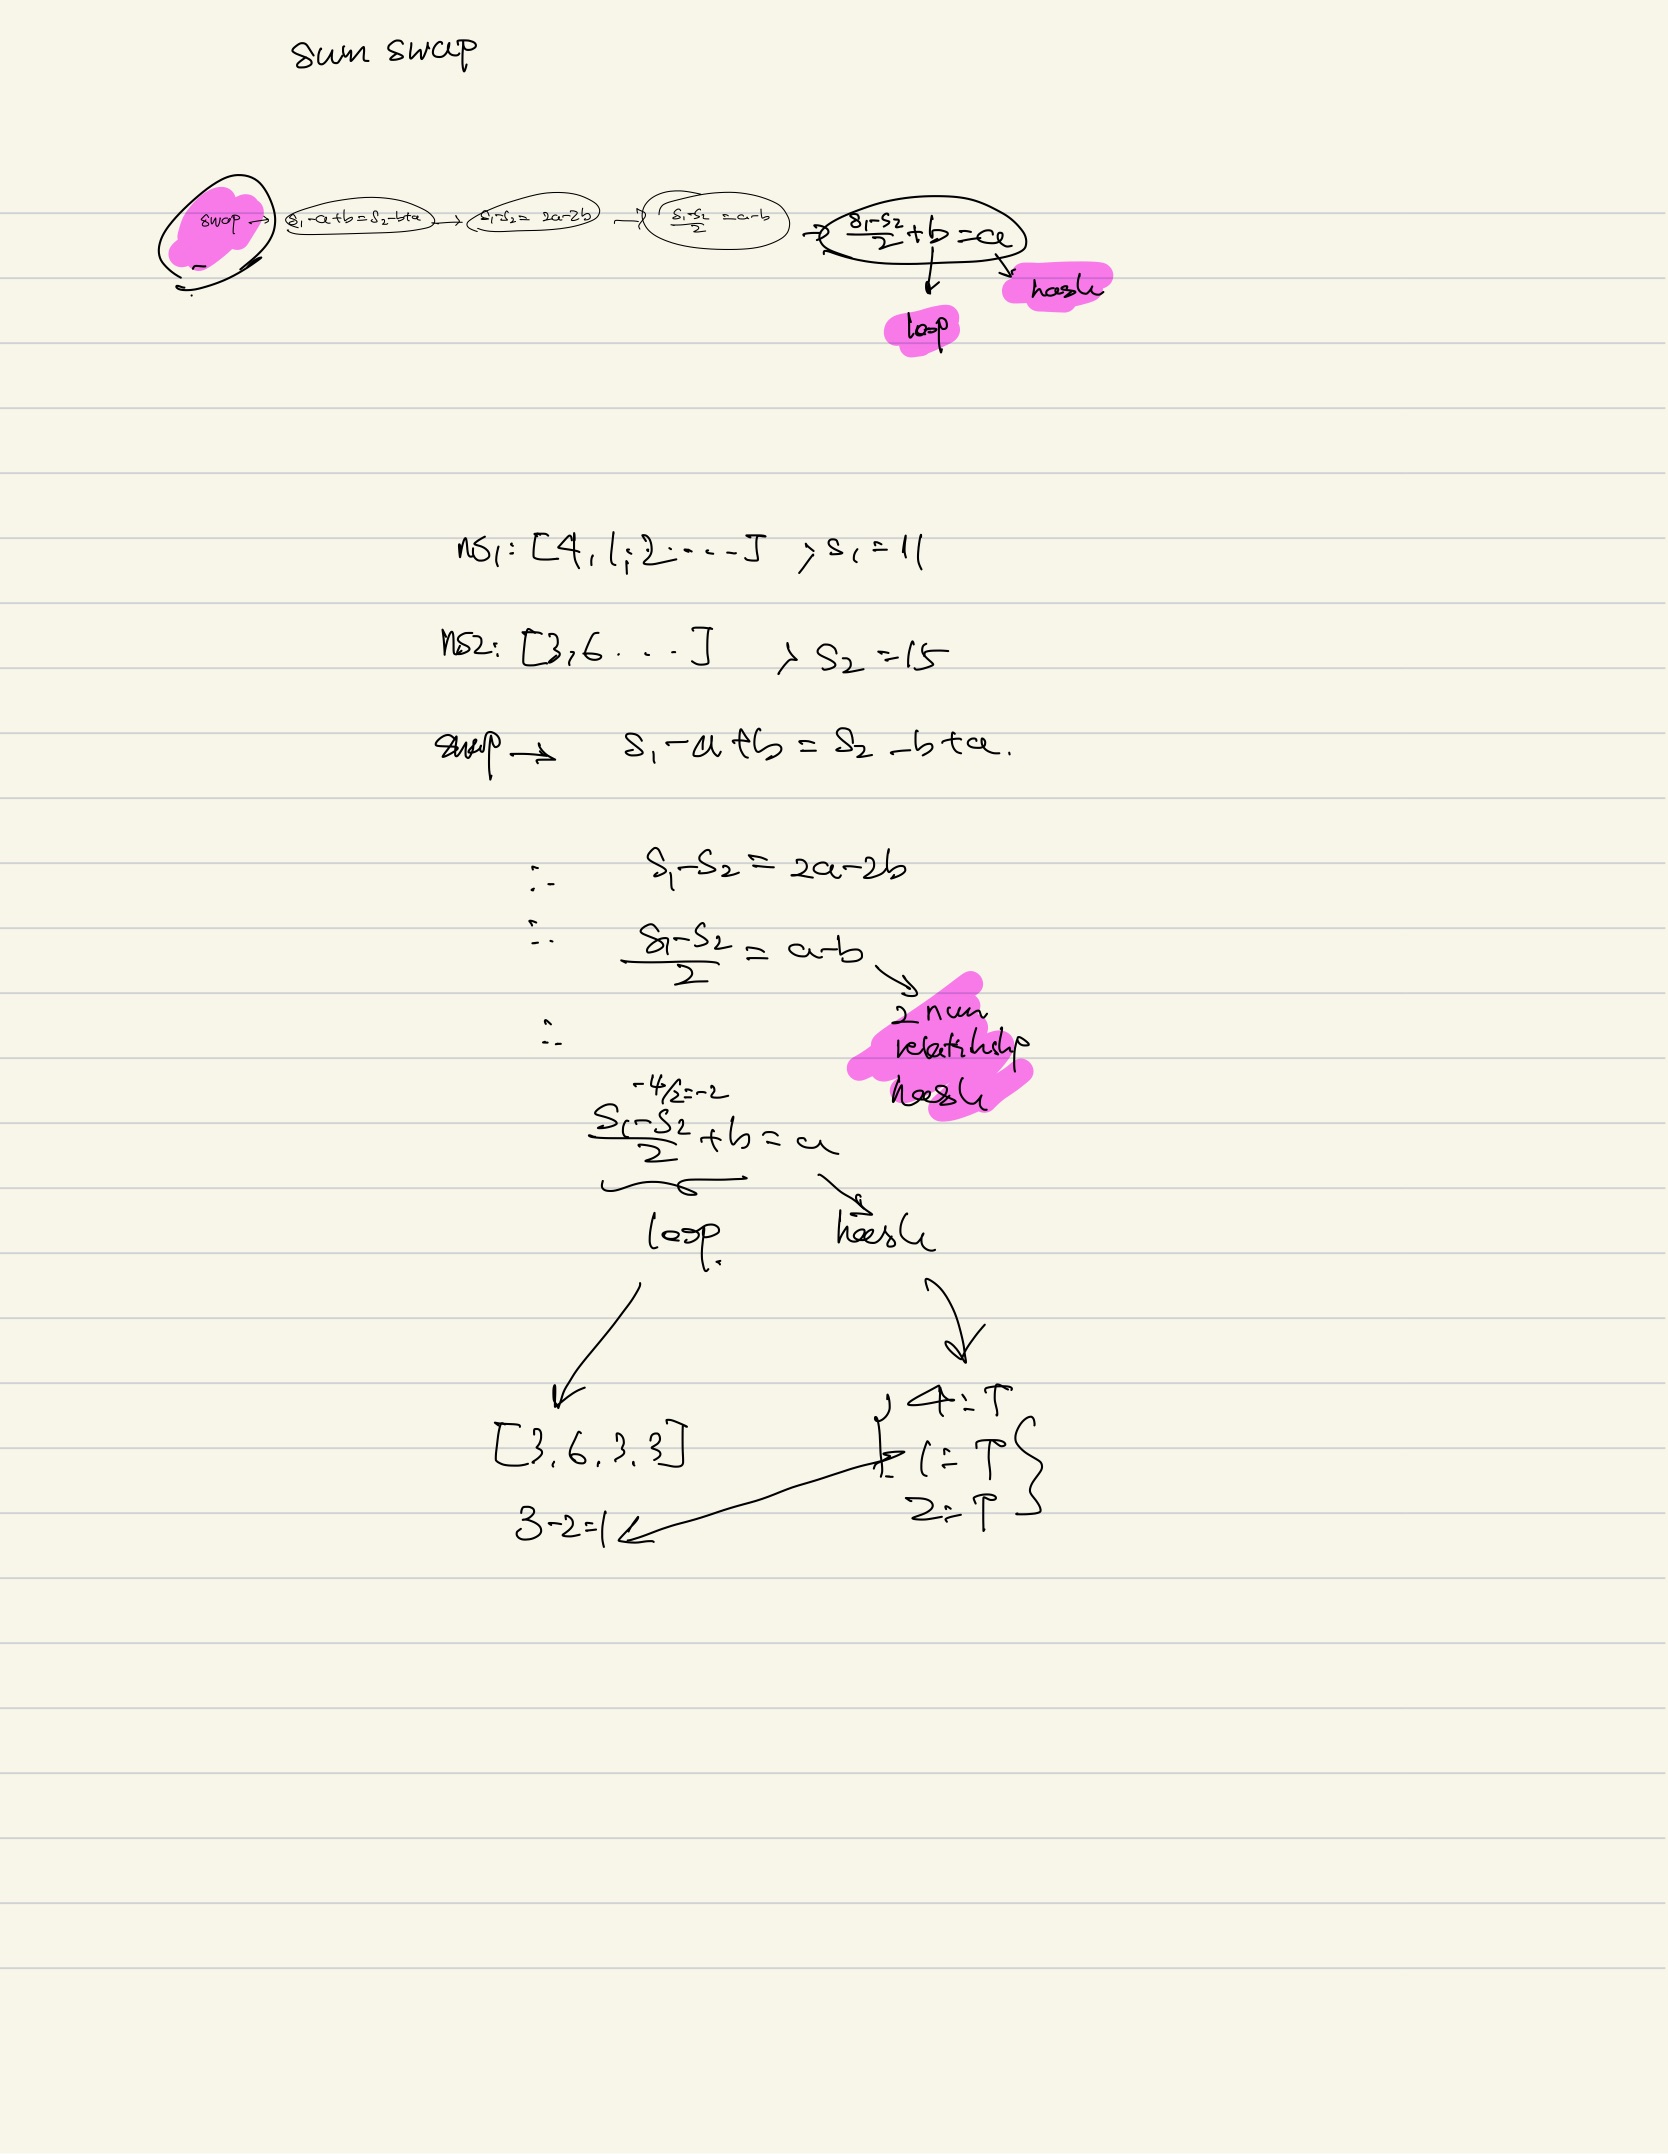 sum swap
swap → S₁-a+b=S₂-b+a → S₁-S₂= 2a-2b → (S₁-S₂)/2 = a-b → (S₁-S₂)/2 + b = a
hash
loop
ns₁: [4, 1, 2 ....] , S₁ = 11
ns2: [3, 6 ...] , S₂ = 15
swap → S₁ - a + b = S₂ - b + a.
∴ S₁-S₂ = 2a-2b
∴ (S₁-S₂)/2 = a-b
2 num
relatihship
hash
∴
-4/2=-2
(S₁-S₂)/2 + b = a
loop. hash
4:T
[3, 6, 3, 3] 1:T
2:T
3-2=1